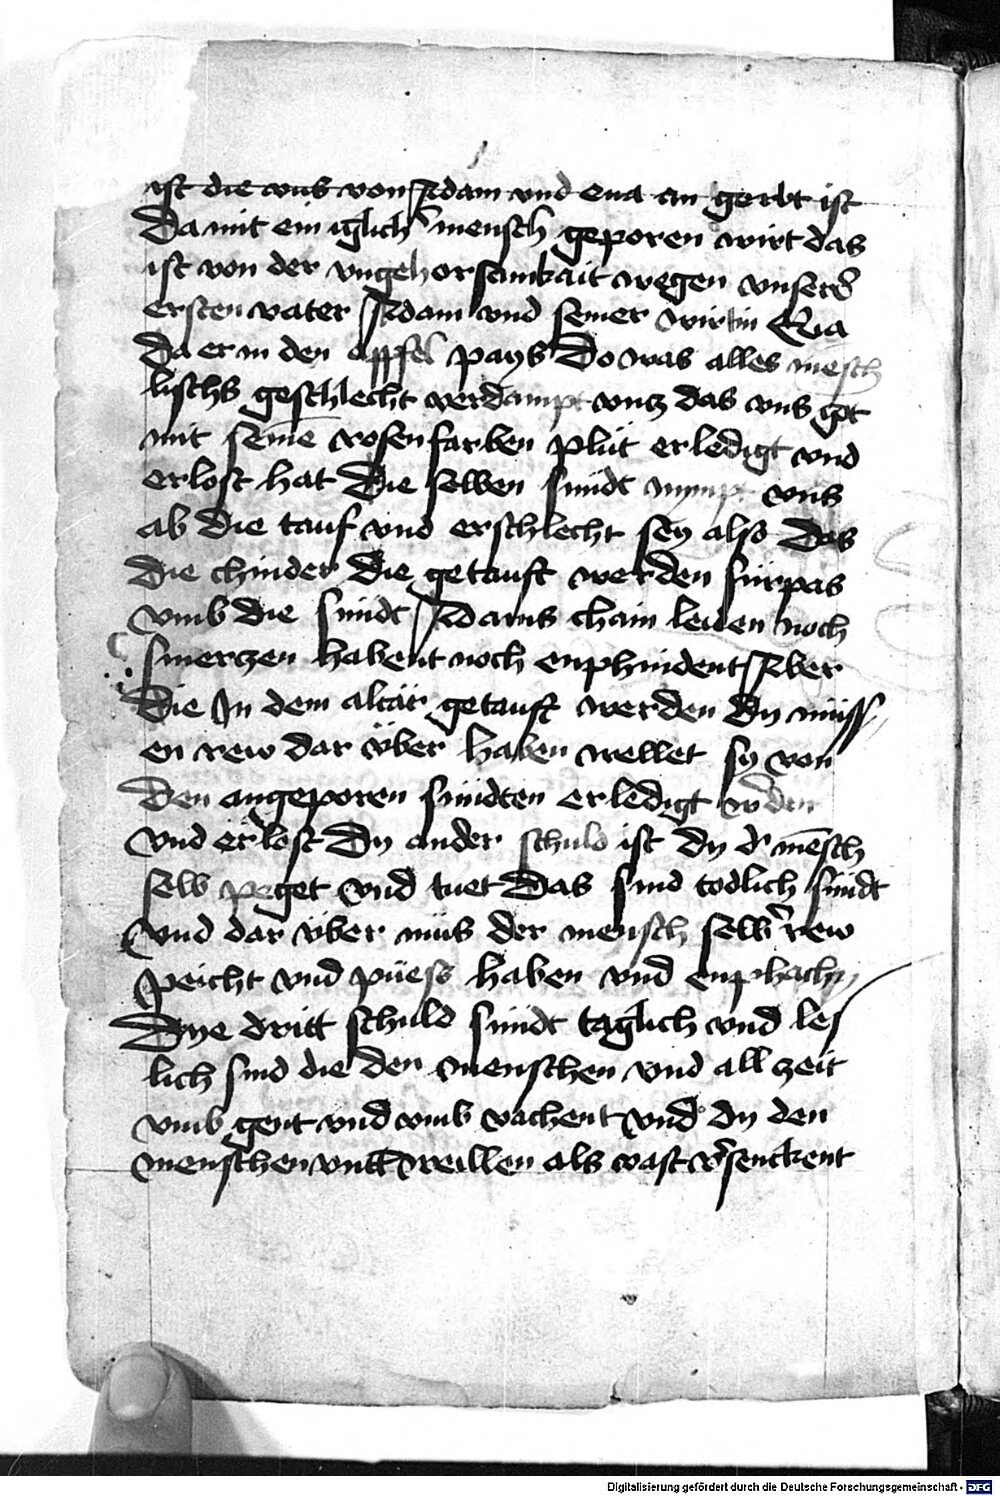 ist die vns von Adam vnd eua an gerbt ist
Da mit ein iglich̄ mensch geporen wirt das
ist von der vngehorsamkait wegen vnserr̄
ersten vater Adam vnd seiner wirtin Eva
Da er in den appfel pays Do was alles mēsch
lischs geschlecht verdampt vntz das vns got
mit seinē rosenfarben plüt erledigt vnd
erlost hat Die selben sündt nympt vns
ab die tauf vnd erschlecht sey also Das
Die chinder Die getauft werden fürpas
vmb die sündt Adams chain leiden noch
smerczen habent noch enphindent Aber
Die In dem altär getauft werden Dy müss
en rew dar über haben wellet sy von
Den angeporen sündten erledigt w̄den
vnd erlost Dy ander schuld ist dy d̄ mēsch
selb peget vnd tuet Das sind todlich sündt
vnd dar über müs der mensch selb̄ rew
peicht vnd püess haben vnd enphachn
Dye dritt schuld sündt taglich vnd les
lich sind die den menschen vnd all zeit
vmb gent vnd vmb vachent vnd dy den
menschen vntt̄ weillen als vast v̄senckent
Digitalisierung gefördert durch die Deutsche Forschungsgemeinschaft - DFG